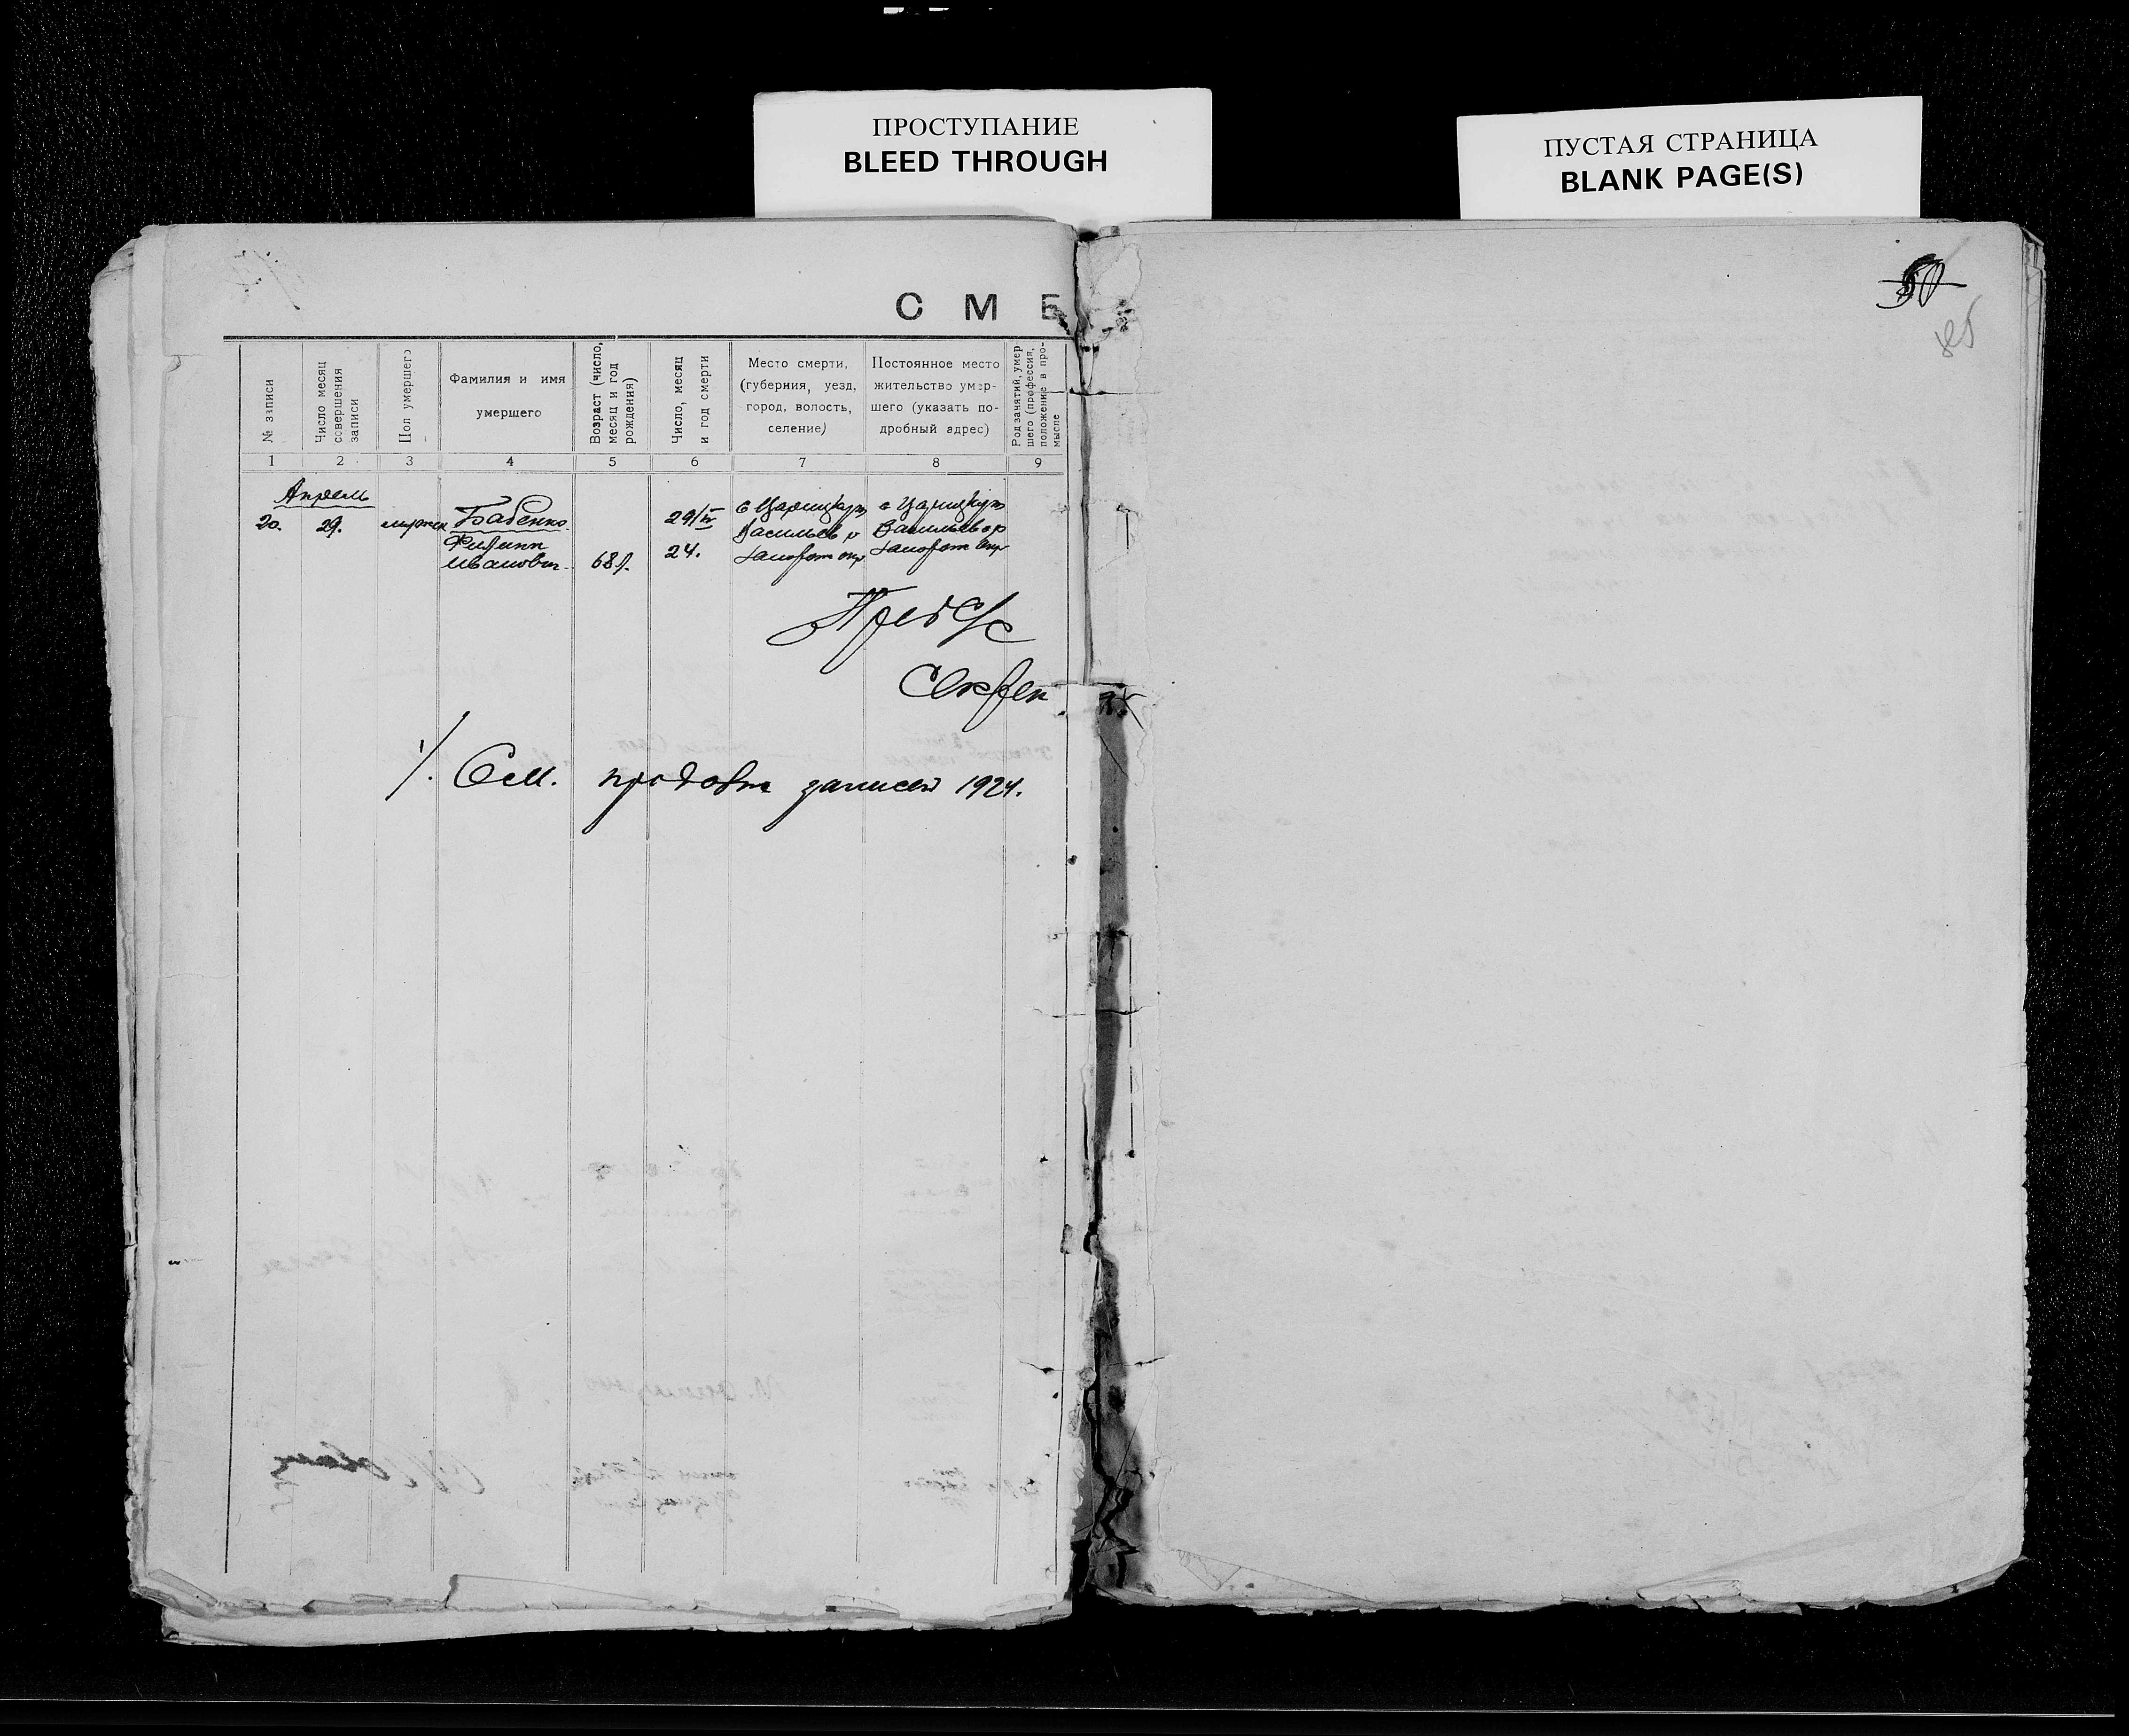 ПРОСТУПАНИЕ
BLEED THROUGH
ПУСТАЯ СТРАНИЦА
BLANK PAGE(S)
50
С М Е
№ записи
Число месяц
совершения
записи
Пол умершего
Фамилия и имя
умершего
Возраст (число,
месяц и год
рождения)
Число, месяц
и год смерти
Место смерти,
(губерния, уезд,
город, волость,
селение)
Постоянное место
жительство умер-
шего (указать по-
дробный адрес)
Род занятий, умер-
шего (профессия,
положение в про-
мысле
1 2 3 4 5 6 7 8 9
Апрель
20. 29. мужск Бабенко
Филипп
Иванович
68 л.
29/IV
24.
с Царицкут
Васильев р
Запорож окр
с Царицкут
Васильев р
Запорож окр
Пред С/с
Секрет
См. продовж записей 1924.